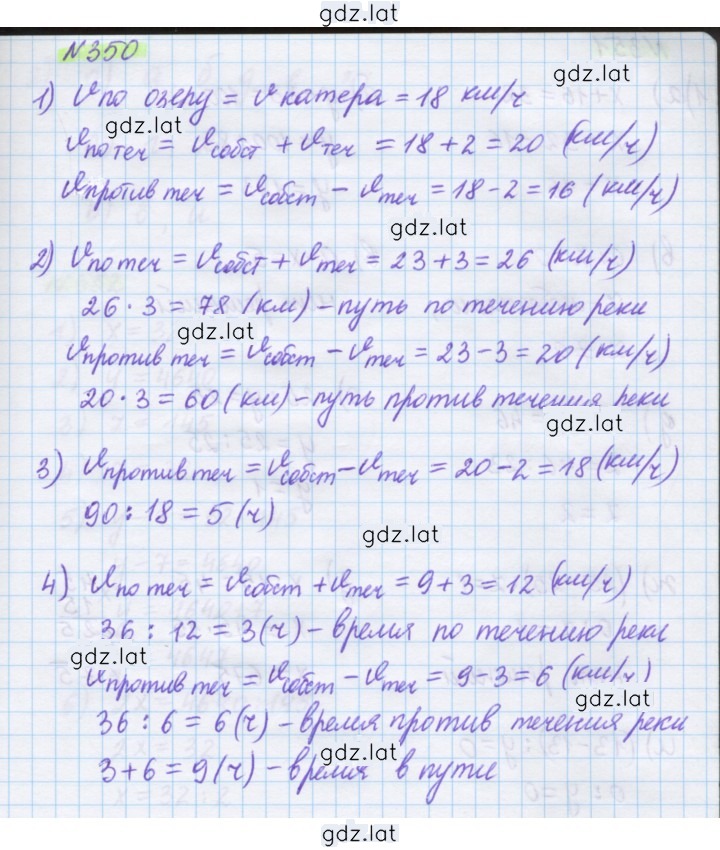 gdz.lat
№350
gdz.lat
1) Vпо озеру = Vкатера = 18 км/ч
gdz.lat
Vпо теч = Vсобст + Vтеч = 18 + 2 = 20 (км/ч)
Vпротив теч = Vсобст - Vтеч = 18 - 2 = 16 (км/ч)
gdz.lat
2) Vпо теч = Vсобст + Vтеч = 23 + 3 = 26 (км/ч)
26 · 3 = 78 (км) - путь по течению реки
gdz.lat
Vпротив теч = Vсобст - Vтеч = 23 - 3 = 20 (км/ч)
20 · 3 = 60 (км) - путь против течения реки
gdz.lat
3) Vпротив теч = Vсобст - Vтеч = 20 - 2 = 18 (км/ч)
90 : 18 = 5 (ч)
gdz.lat
4) Vпо теч = Vсобст + Vтеч = 9 + 3 = 12 (км/ч)
36 : 12 = 3 (ч) - время по течению реки
gdz.lat
Vпротив теч = Vсобст - Vтеч = 9 - 3 = 6 (км/ч)
gdz.lat
36 : 6 = 6 (ч) - время против течения реки
gdz.lat
3 + 6 = 9 (ч) - время в пути
gdz.lat